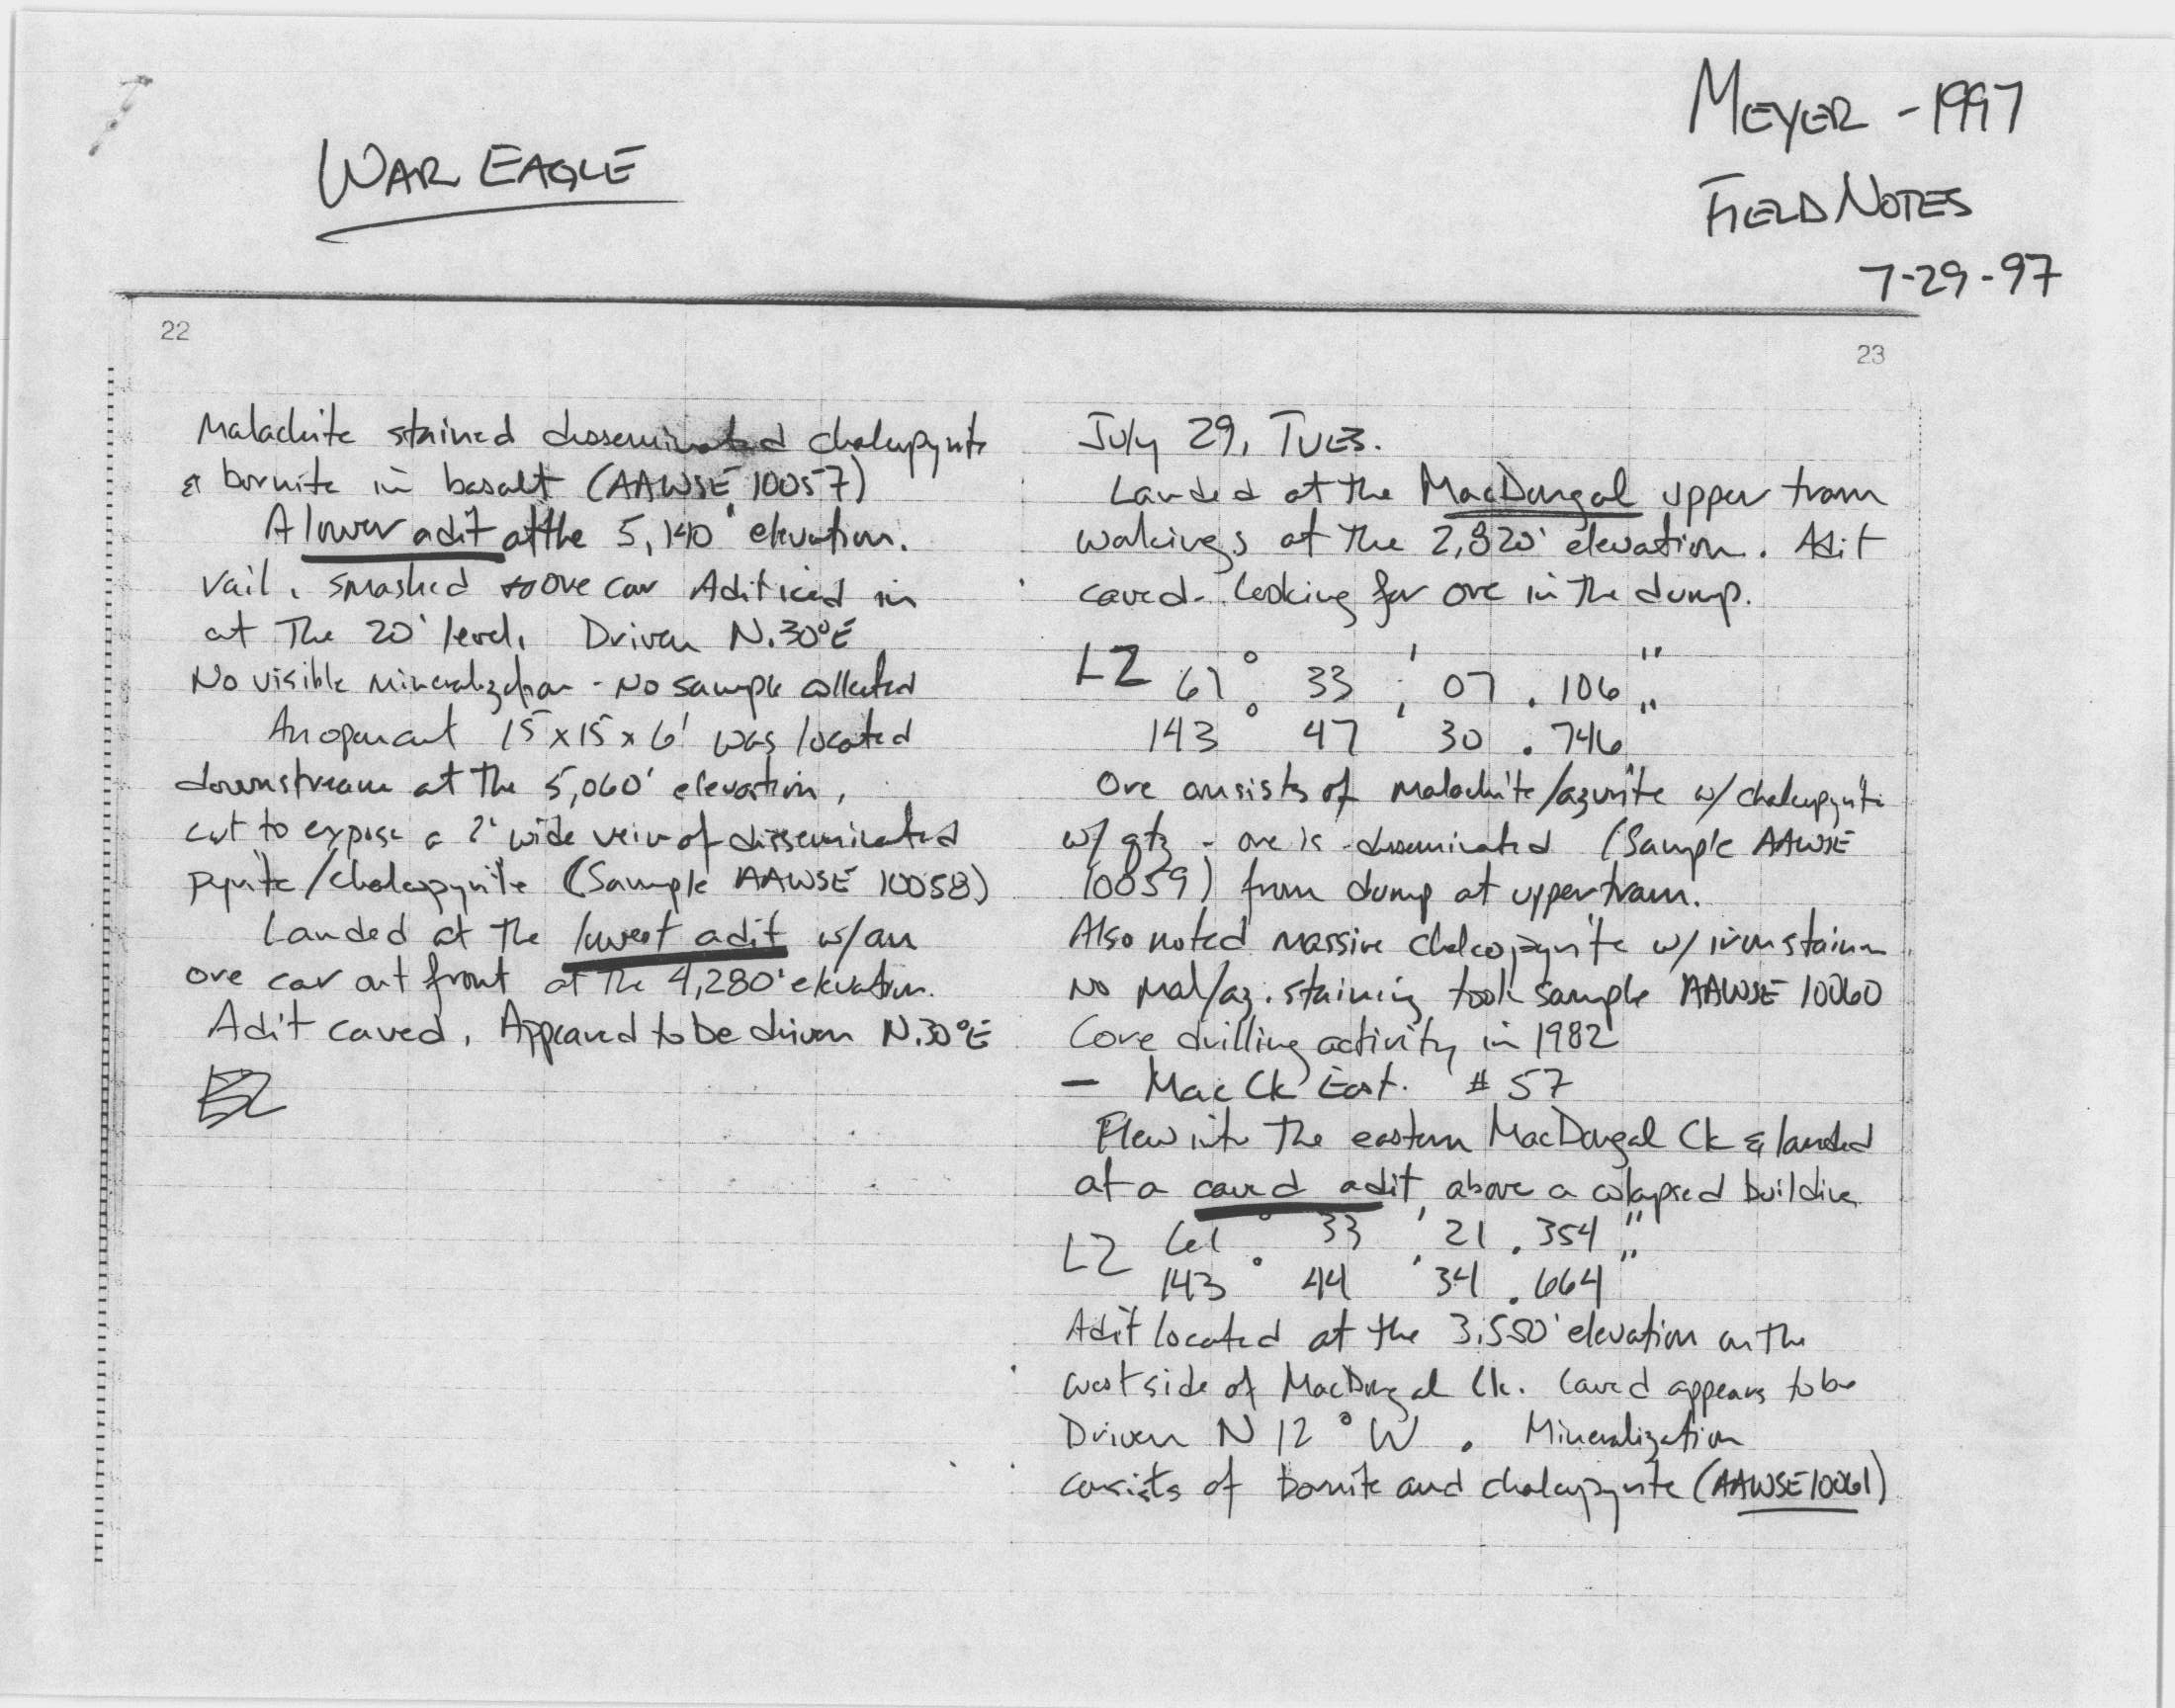 WAR EAGLE
MEYER - 1997
FIELD NOTES
7-29-97
22
Malachite stained disseminated chalcopyrite
& bornite in basalt (AAWSE 10057)
A lower adit at the 5,140' elevation.
rail, smashed ore car Adit iced in
at The 20' level. Driven N.30°E
No visible mineralization - No sample collected
An open cut 15 x 15 x 6' was located
downstream at the 5,060' elevation,
cut to expose a 2' wide vein of disseminated
pyrite/chalcopyrite (Sample AAWSE 10058)
Landed at the lowest adit w/an
ore car out front at the 4,280' elevation.
Adit caved. Appeared to be driven N.30°E
23
July 29, TUES.
Landed at the MacDougal upper tram
workings at the 2,820' elevation. Adit
caved - Looking for ore in the dump.
LZ 61° 33' 07.106"
143° 47' 30.746"
Ore consists of malachite/azurite w/ chalcopyrite
w/ qtz - ore is disseminated (Sample AAWSE
10059) from dump at upper tram.
Also noted massive chalcopyrite w/ iron stain
No mal/az. staining took sample AAWSE 10060
Core drilling activity in 1982
- Mac Ck East. #57
Flew into the eastern MacDougal Ck & landed
at a caved adit above a colapsed building
LZ 61° 33' 21.354"
143° 44' 34.664"
Adit located at the 3,550' elevation on the
west side of MacDougal Ck. Caved appears to be
Driven N 12° W. Mineralization
consists of bornite and chalcopyrite (AAWSE 10061)